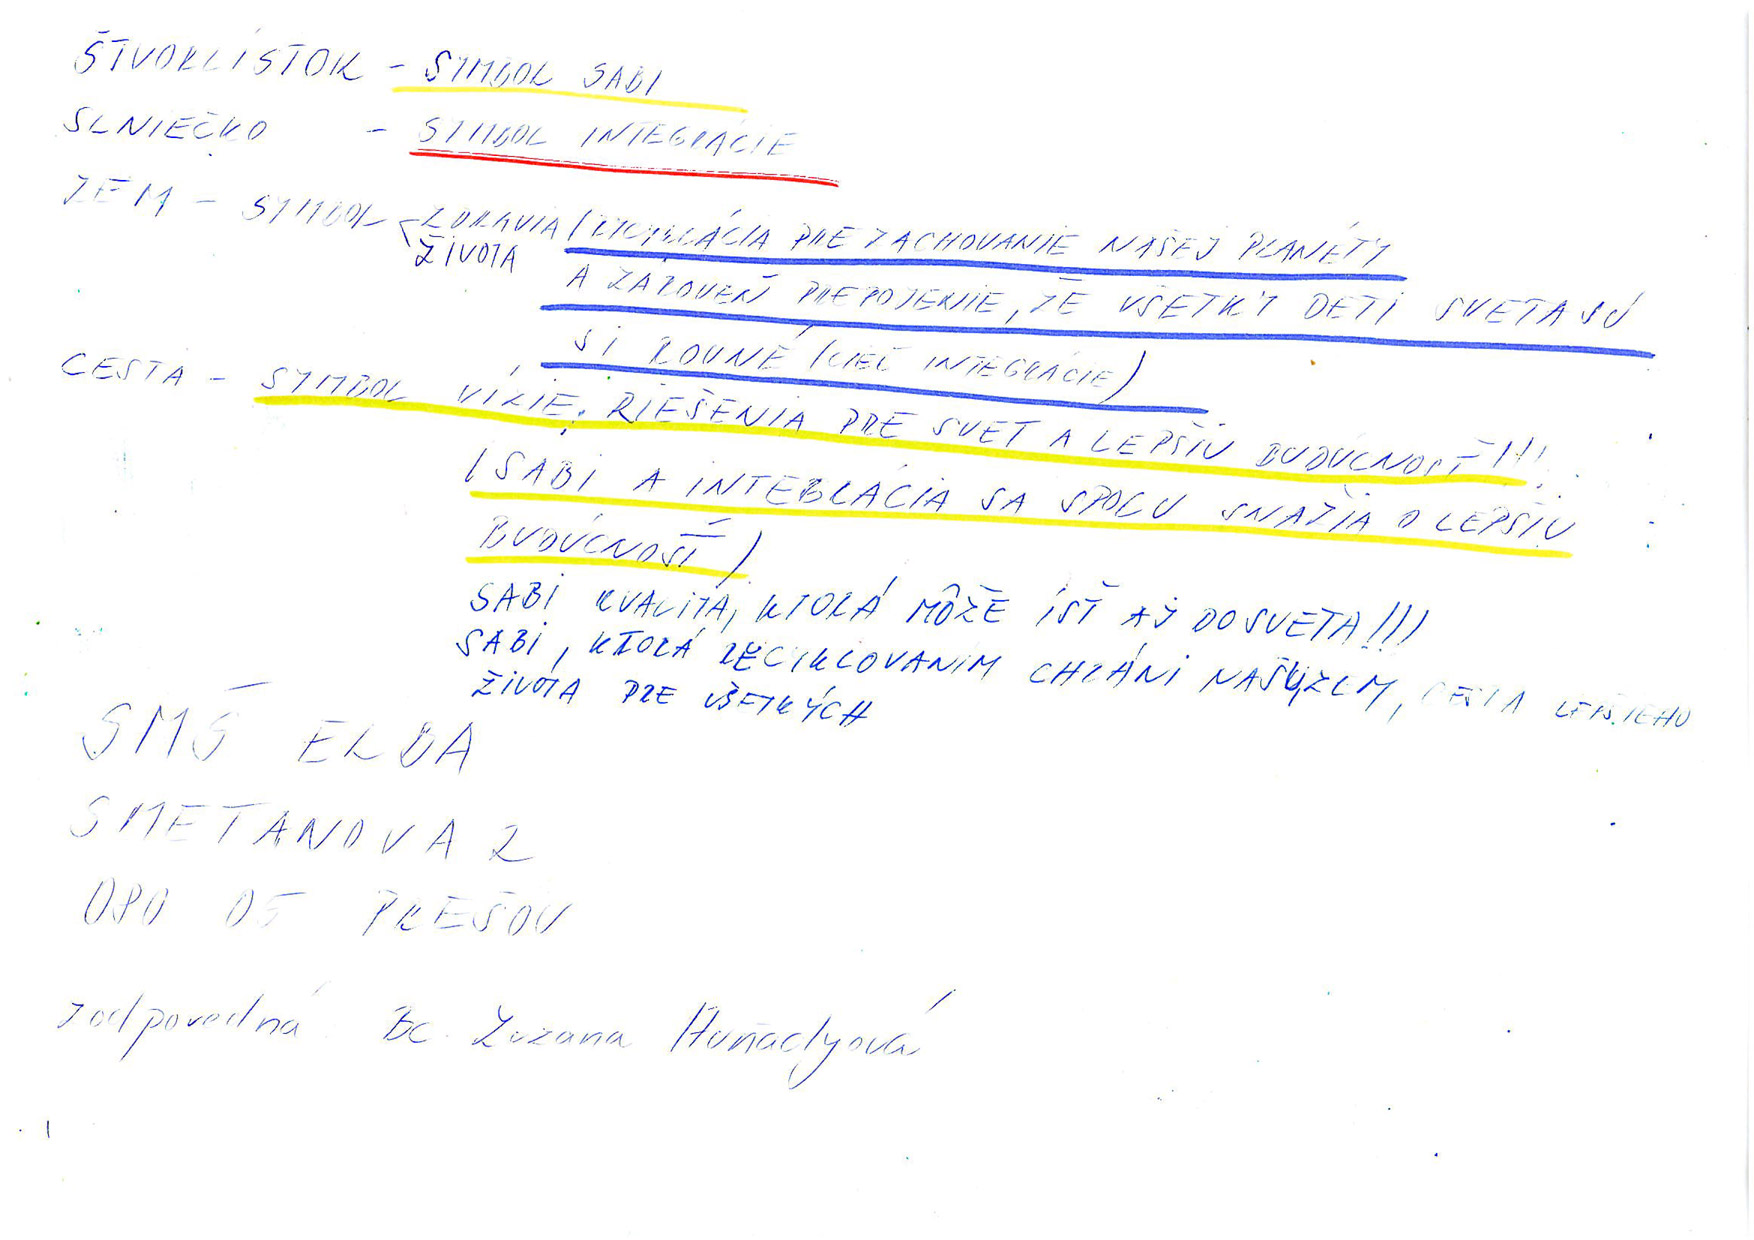 ŠTVORLÍSTOK - SYMBOL SABI
SLNIEČKO - SYMBOL INTEGRÁCIE
ZEM - SYMBOL < ZDRAVIA (RECYKLÁCIA PRE ZACHOVANIE NAŠEJ PLANÉTY
ŽIVOTA
A ZÁROVEŇ PREPOJENIE, ŽE VŠETKY DETI SVETA SÚ
SI ROVNÉ (CIEĽ INTEGRÁCIE)
CESTA - SYMBOL VÍZIE, RIEŠENIA PRE SVET A LEPŠIU BUDÚCNOSŤ!!!
(SABI A INTEGRÁCIA SA SPOLU SNAŽIA O LEPŠIU
BUDÚCNOSŤ)
SABI KVALITA, KTORÁ MÔŽE ÍSŤ AŽ DO SVETA!!!
SABI, KTORÁ RECYKLOVANÍM CHRÁNI NAŠU ZEM, CESTA LEPŠIEHO
ŽIVOTA PRE VŠETKÝCH
SMŠ ELBA
SMETANOVA 2
080 05 PREŠOV
zodpovedná Bc. Zuzana Huňadyová